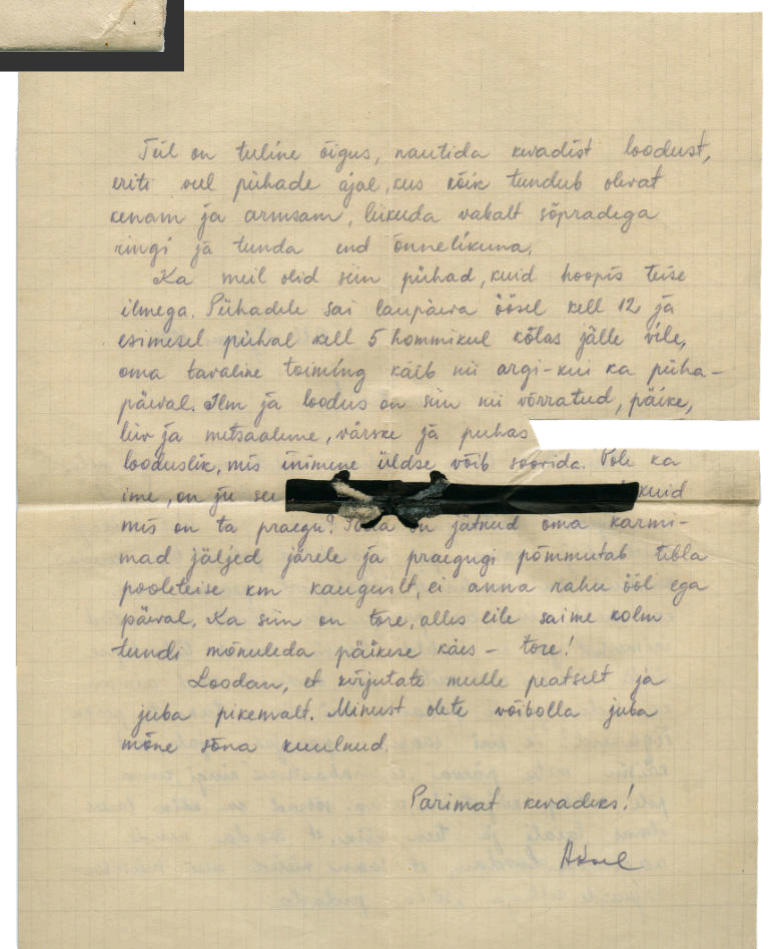 Teil on tuline õigus, nautida kevadist loodust,
eriti veel pühade ajal, kus kõik tundub olevat
kenam ja armsam, liikuda vabalt sõpradega
ringi ja tunda end õnnelikuna.
Ka meil olid siin pühad, kuid hoopis teise
ilmega. Pühadele sai laupäeva öösel kell 12 ja
esimesel pühal kell 5 hommikul kõlas jälle vile,
oma tavaline toiming käib nii argi-kui ka püha-
päeval. Ilm ja loodus on siin nii võrratud, päike,
liiv ja metsaalune, värske ja puhas
looduslik, mis inimene üldse võib soovida. Pole ka
ime, on ju see kuid
mis on ta praegu? on jätnud oma karmi-
mad jäljed järele ja praegugi põmmutab tibla
pooleteise km kauguselt, ei anna rahu ööl ega
päeval. Ka siin on tore, alles eile saime kolm
tundi mõnuleda päikese käes - tore!
Loodan, et kirjutate mulle peatselt ja
juba pikemalt. Minust olete võibolla juba
mõne sõna kuulnud
Parimat kevadeks!